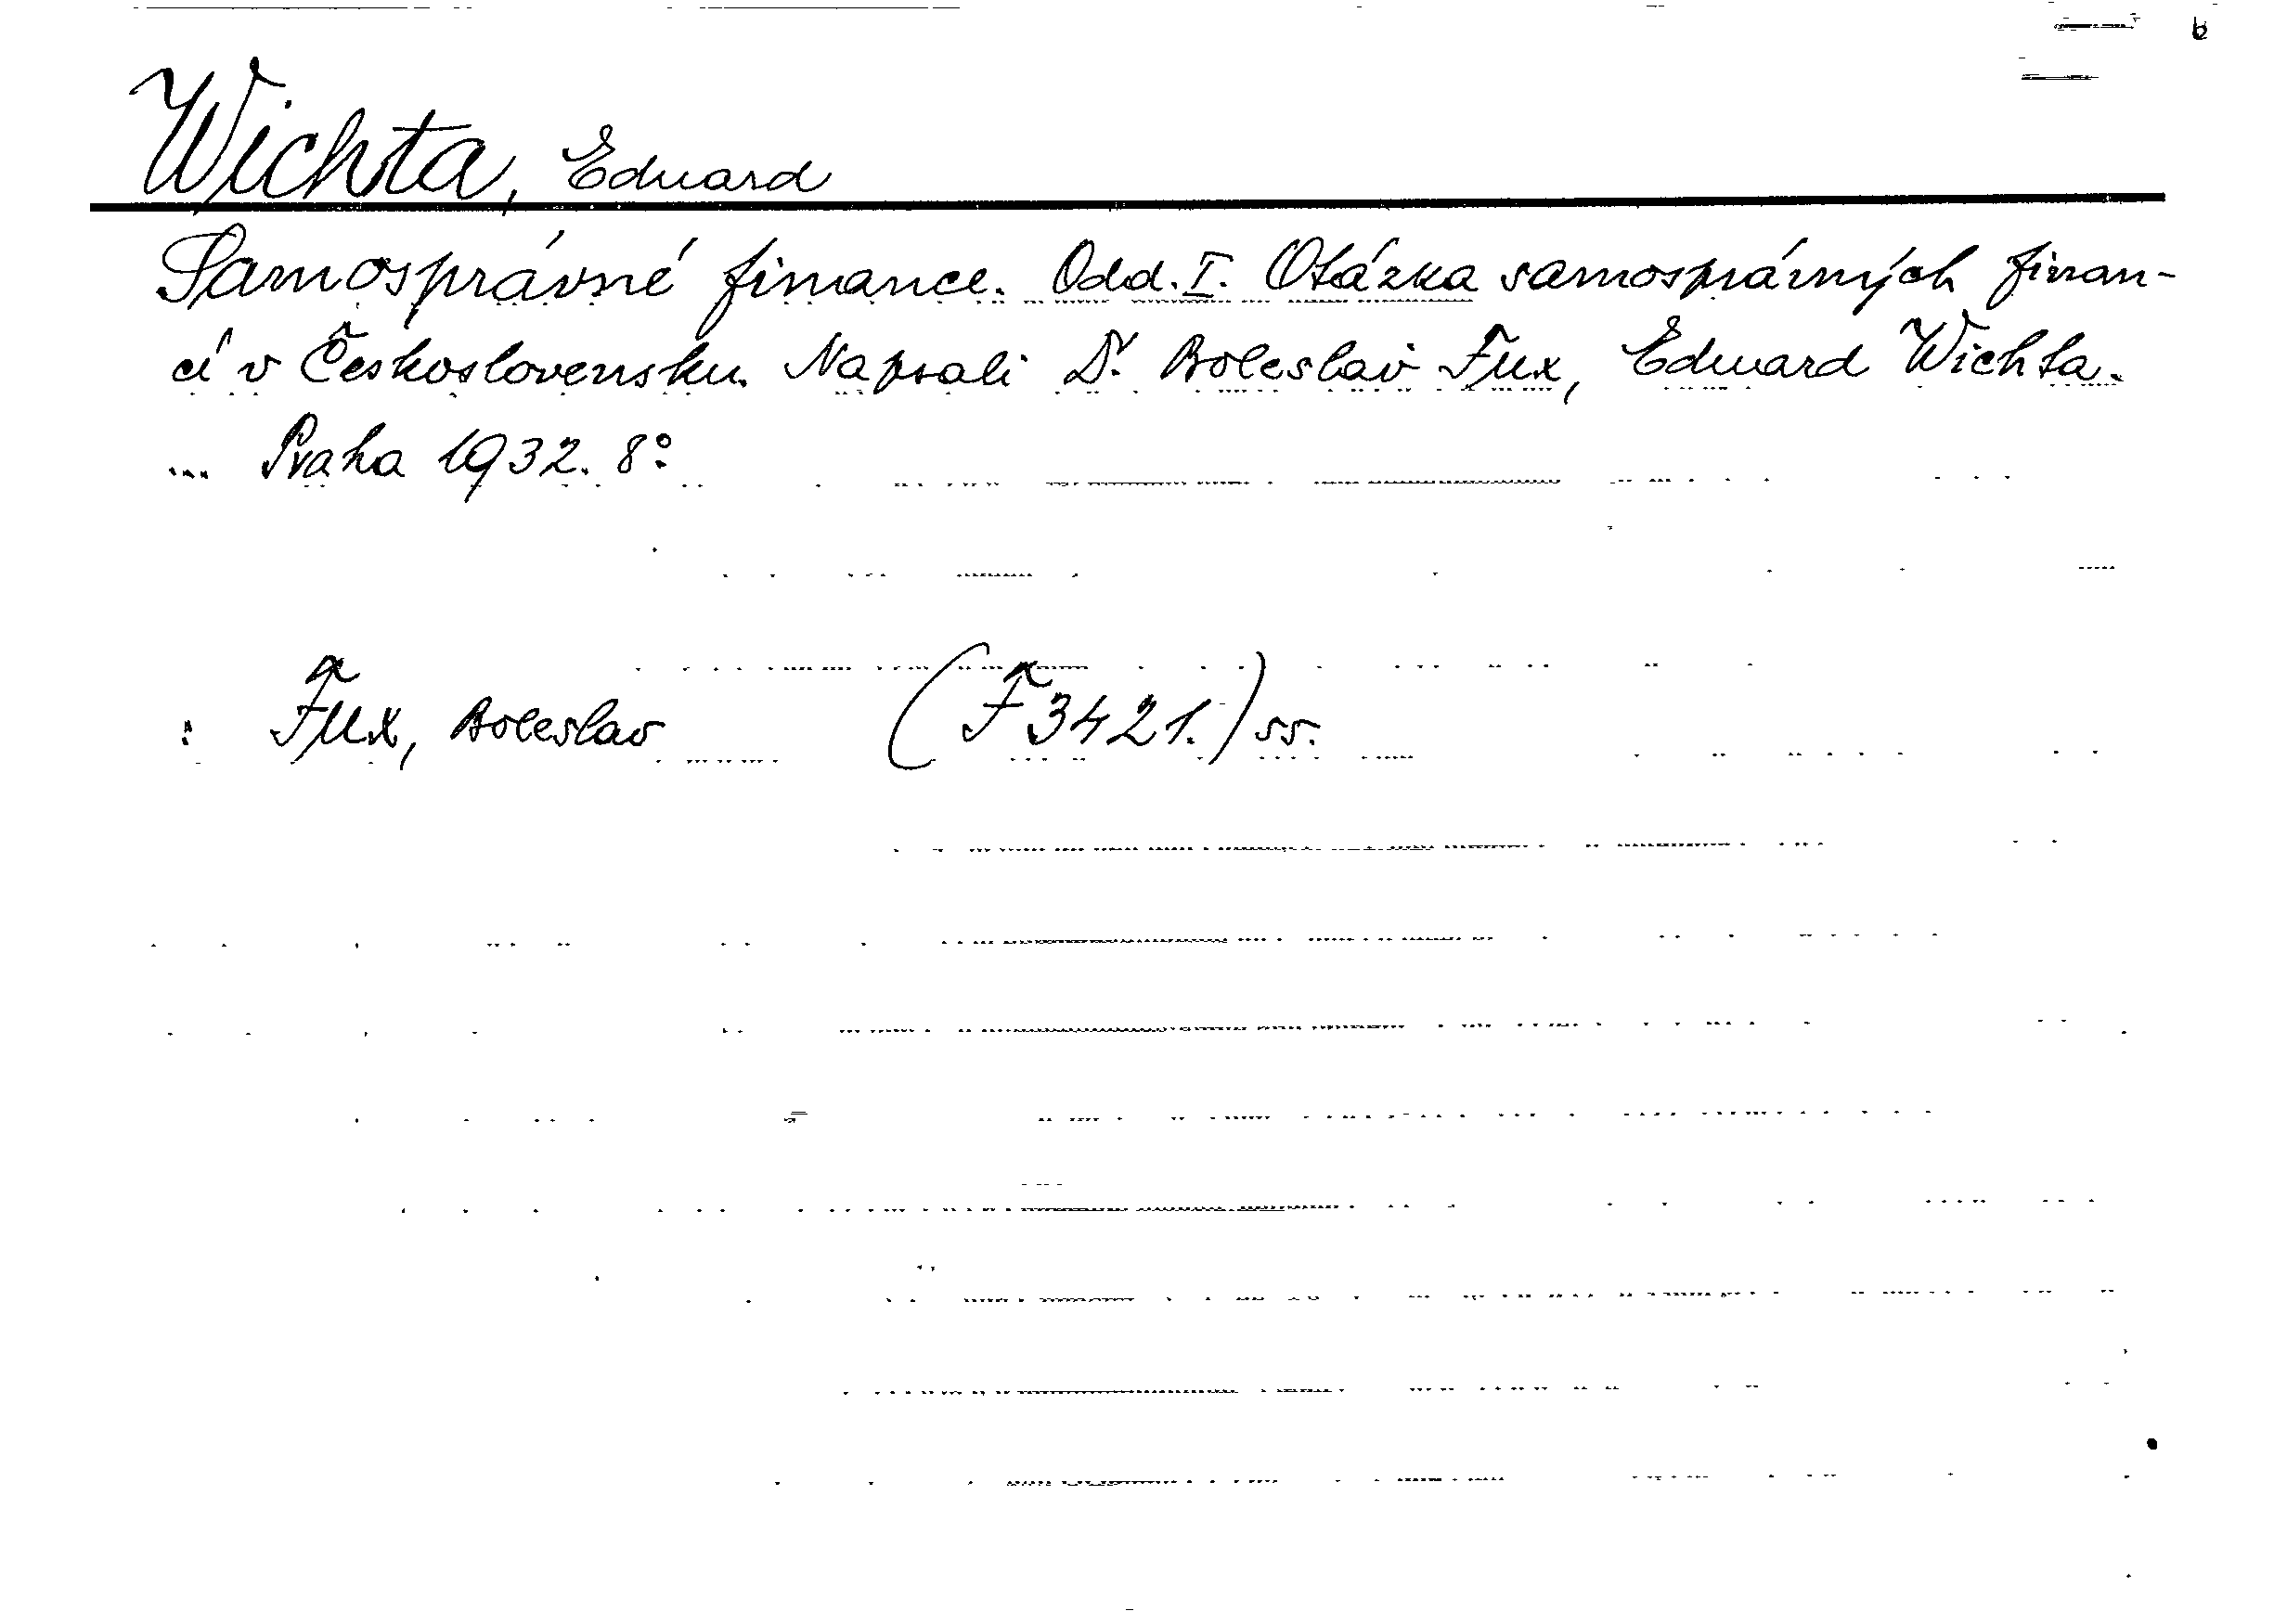 Wichta, Eduard
Samosprávné finance. Odd. I. Otázka samosprávných finan-
cí v Československu. Napsali Dr. Boleslav Fux, Eduard Wichta.
... Praha 1932. 8°.
: Fux, Boleslav (F 3421.) ss.